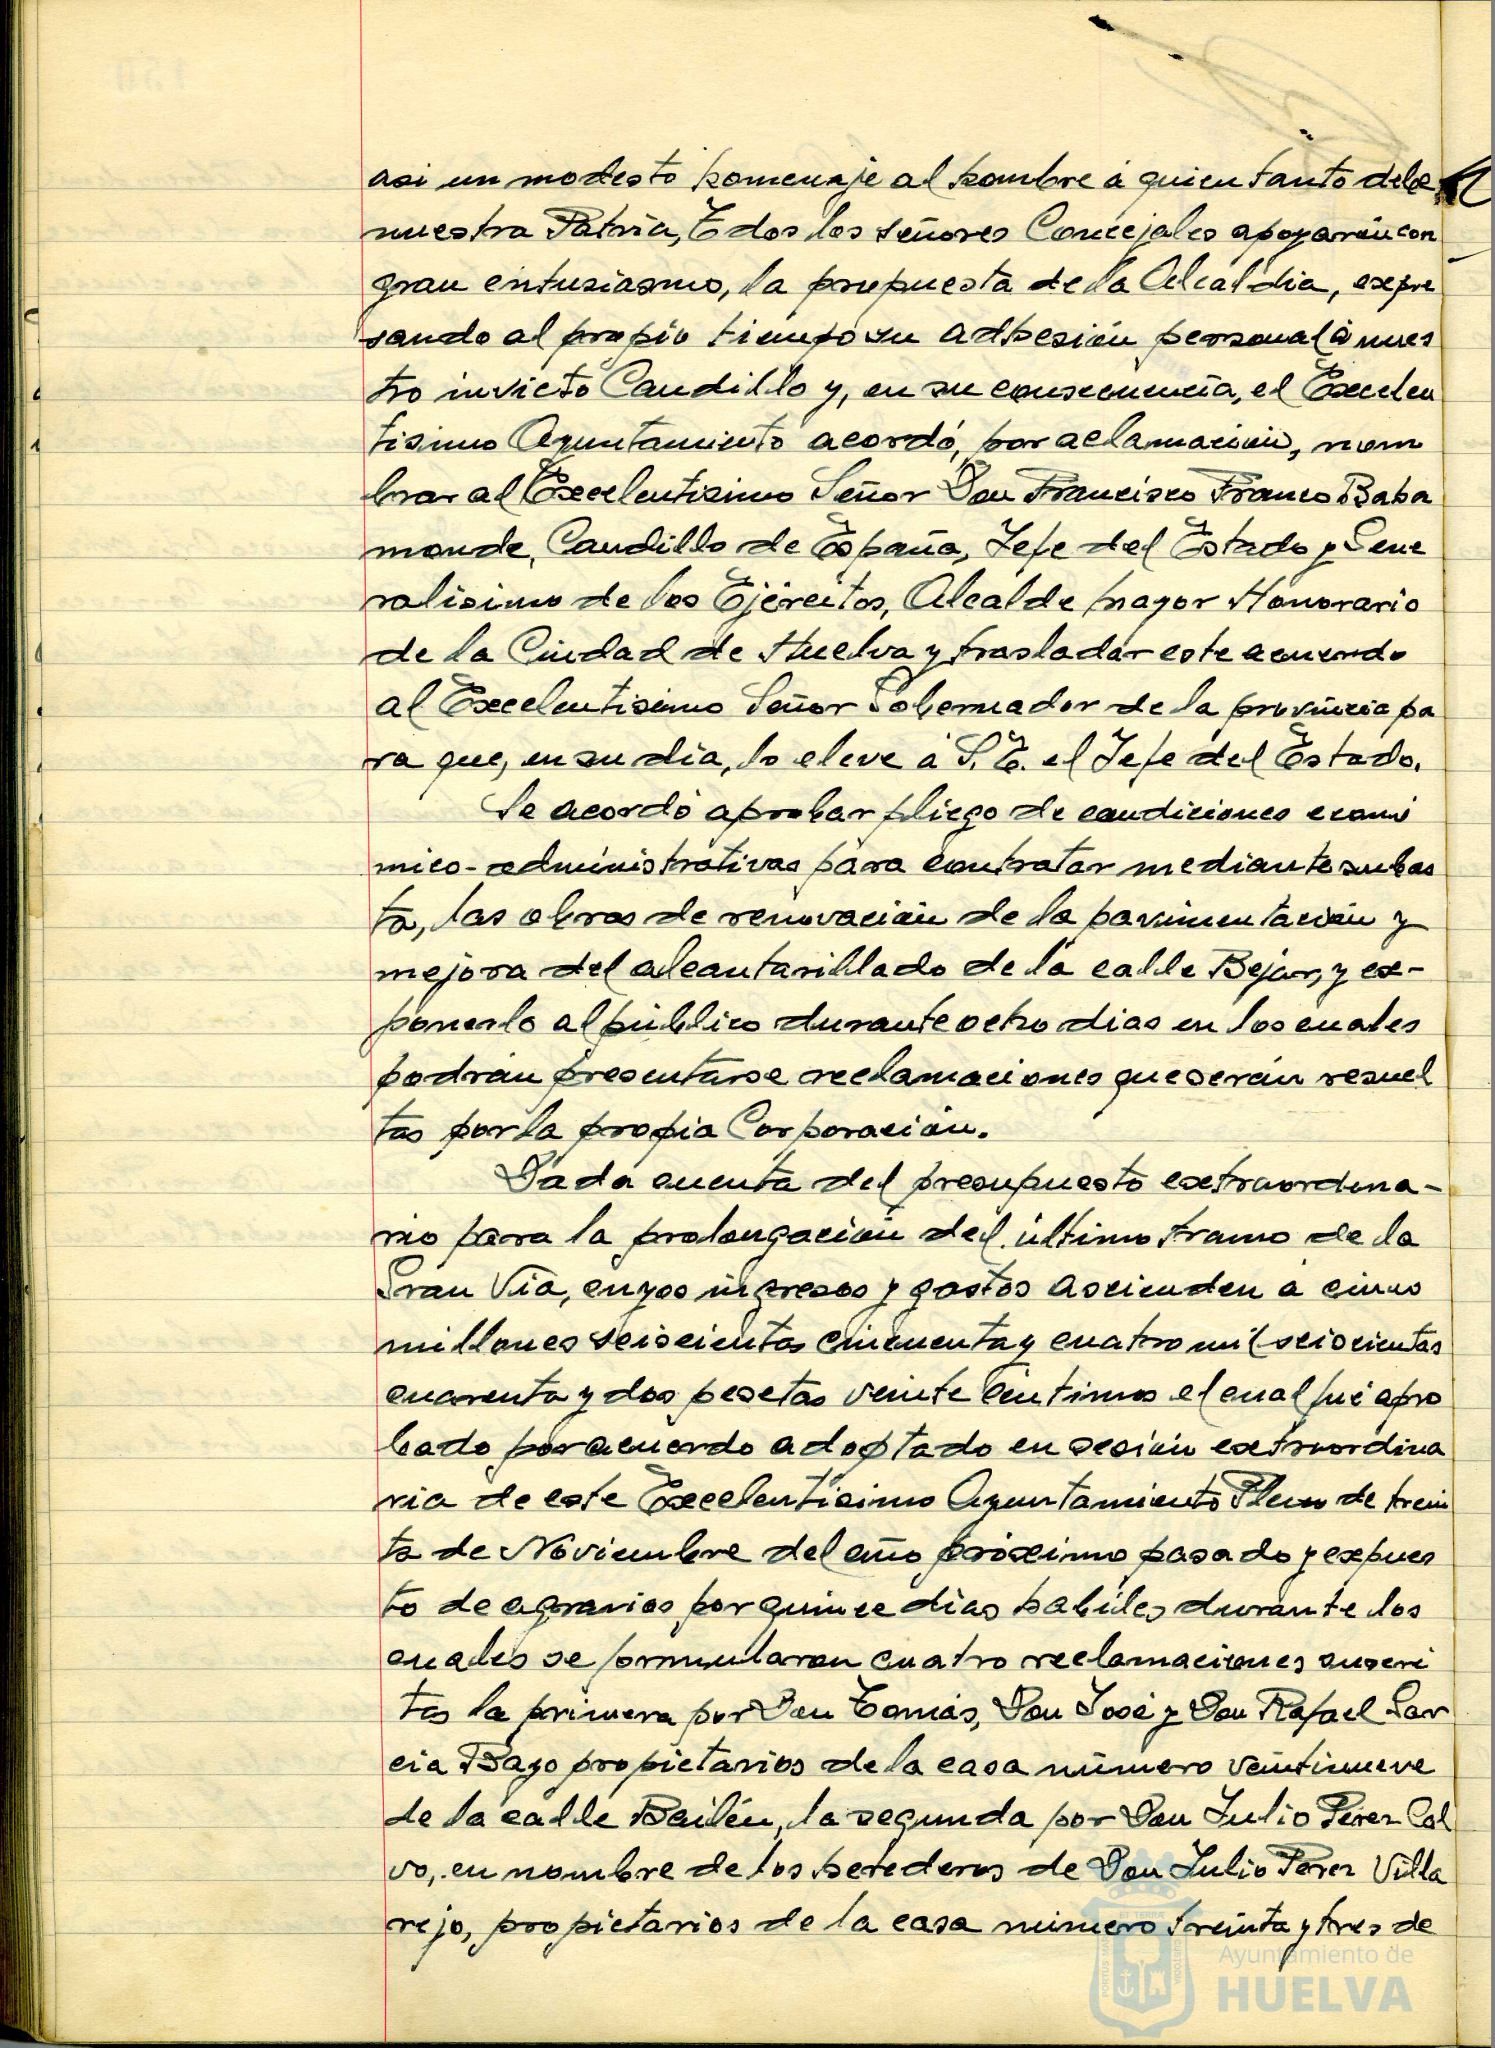 asi un modesto homenaje al hombre á quien tanto debe
nuestra Patria, Todos los señores Concejales apoyarón con
gran entusiasmo, la propuesta de la Alcaldia, expre
sando al propio tiempo su adhesión personal á nues
tro invicto Caudillo y, en su consecuencia, el Excelen
tisimo Ayuntamiento acordó, por aclamación, nom
brar al Excelentisimo Señor Don Francisco Franco Baha
monde, Caudillo de España, Jefe del Estado y Gene
ralisimo de los Ejércitos, Alcalde mayor Honorario
de la Ciudad de Huelva y trasladar este acuerdo
al Excelentisimo Señor Gobernador de la provincia pa
ra que, en su dia, lo eleve á S. E. el Jefe del Estado.
Se acordó aprobar pliego de condiciones econó
mico-administrativas para contratar mediante subas
ta, las obras de renovación de la pavimentación y
mejora del alcantarillado de la calle Bejar, y ex-
ponerlo al público durante ocho dias en los cuales
podrán presentarse reclamaciones que serán resuel
tas por la propia Corporación.
Dada cuenta del presupuesto extraordina-
rio para la prolongación del último tramo de la
Gran Via, cuyos ingresos y gastos ascienden á cinco
millones seiscientas cincuenta y cuatro mil seiscientas
cuarenta y dos pesetas veinte centimos el cual fué apro
bado por acuerdo adoptado en sesión extraordina
ria de este Excelentisimo Ayuntamiento Pleno de trein
ta de Noviembre del año próximo pasado y expues
to de agravios por quince dias habiles durante los
cuales se formularon cuatro reclamaciones suscri
tas la primera por Don Tomás, Don José y Don Rafael Gar
cia Bayo propietarios de la casa número veintinueve
de la calle Bailén, la segunda por Don Julio Perez Cal
vo, en nombre de los herederos de Don Julio Perez Villa
rejo, propietarios de la casa número treinta y tres de
Ayuntamiento de
HUELVA